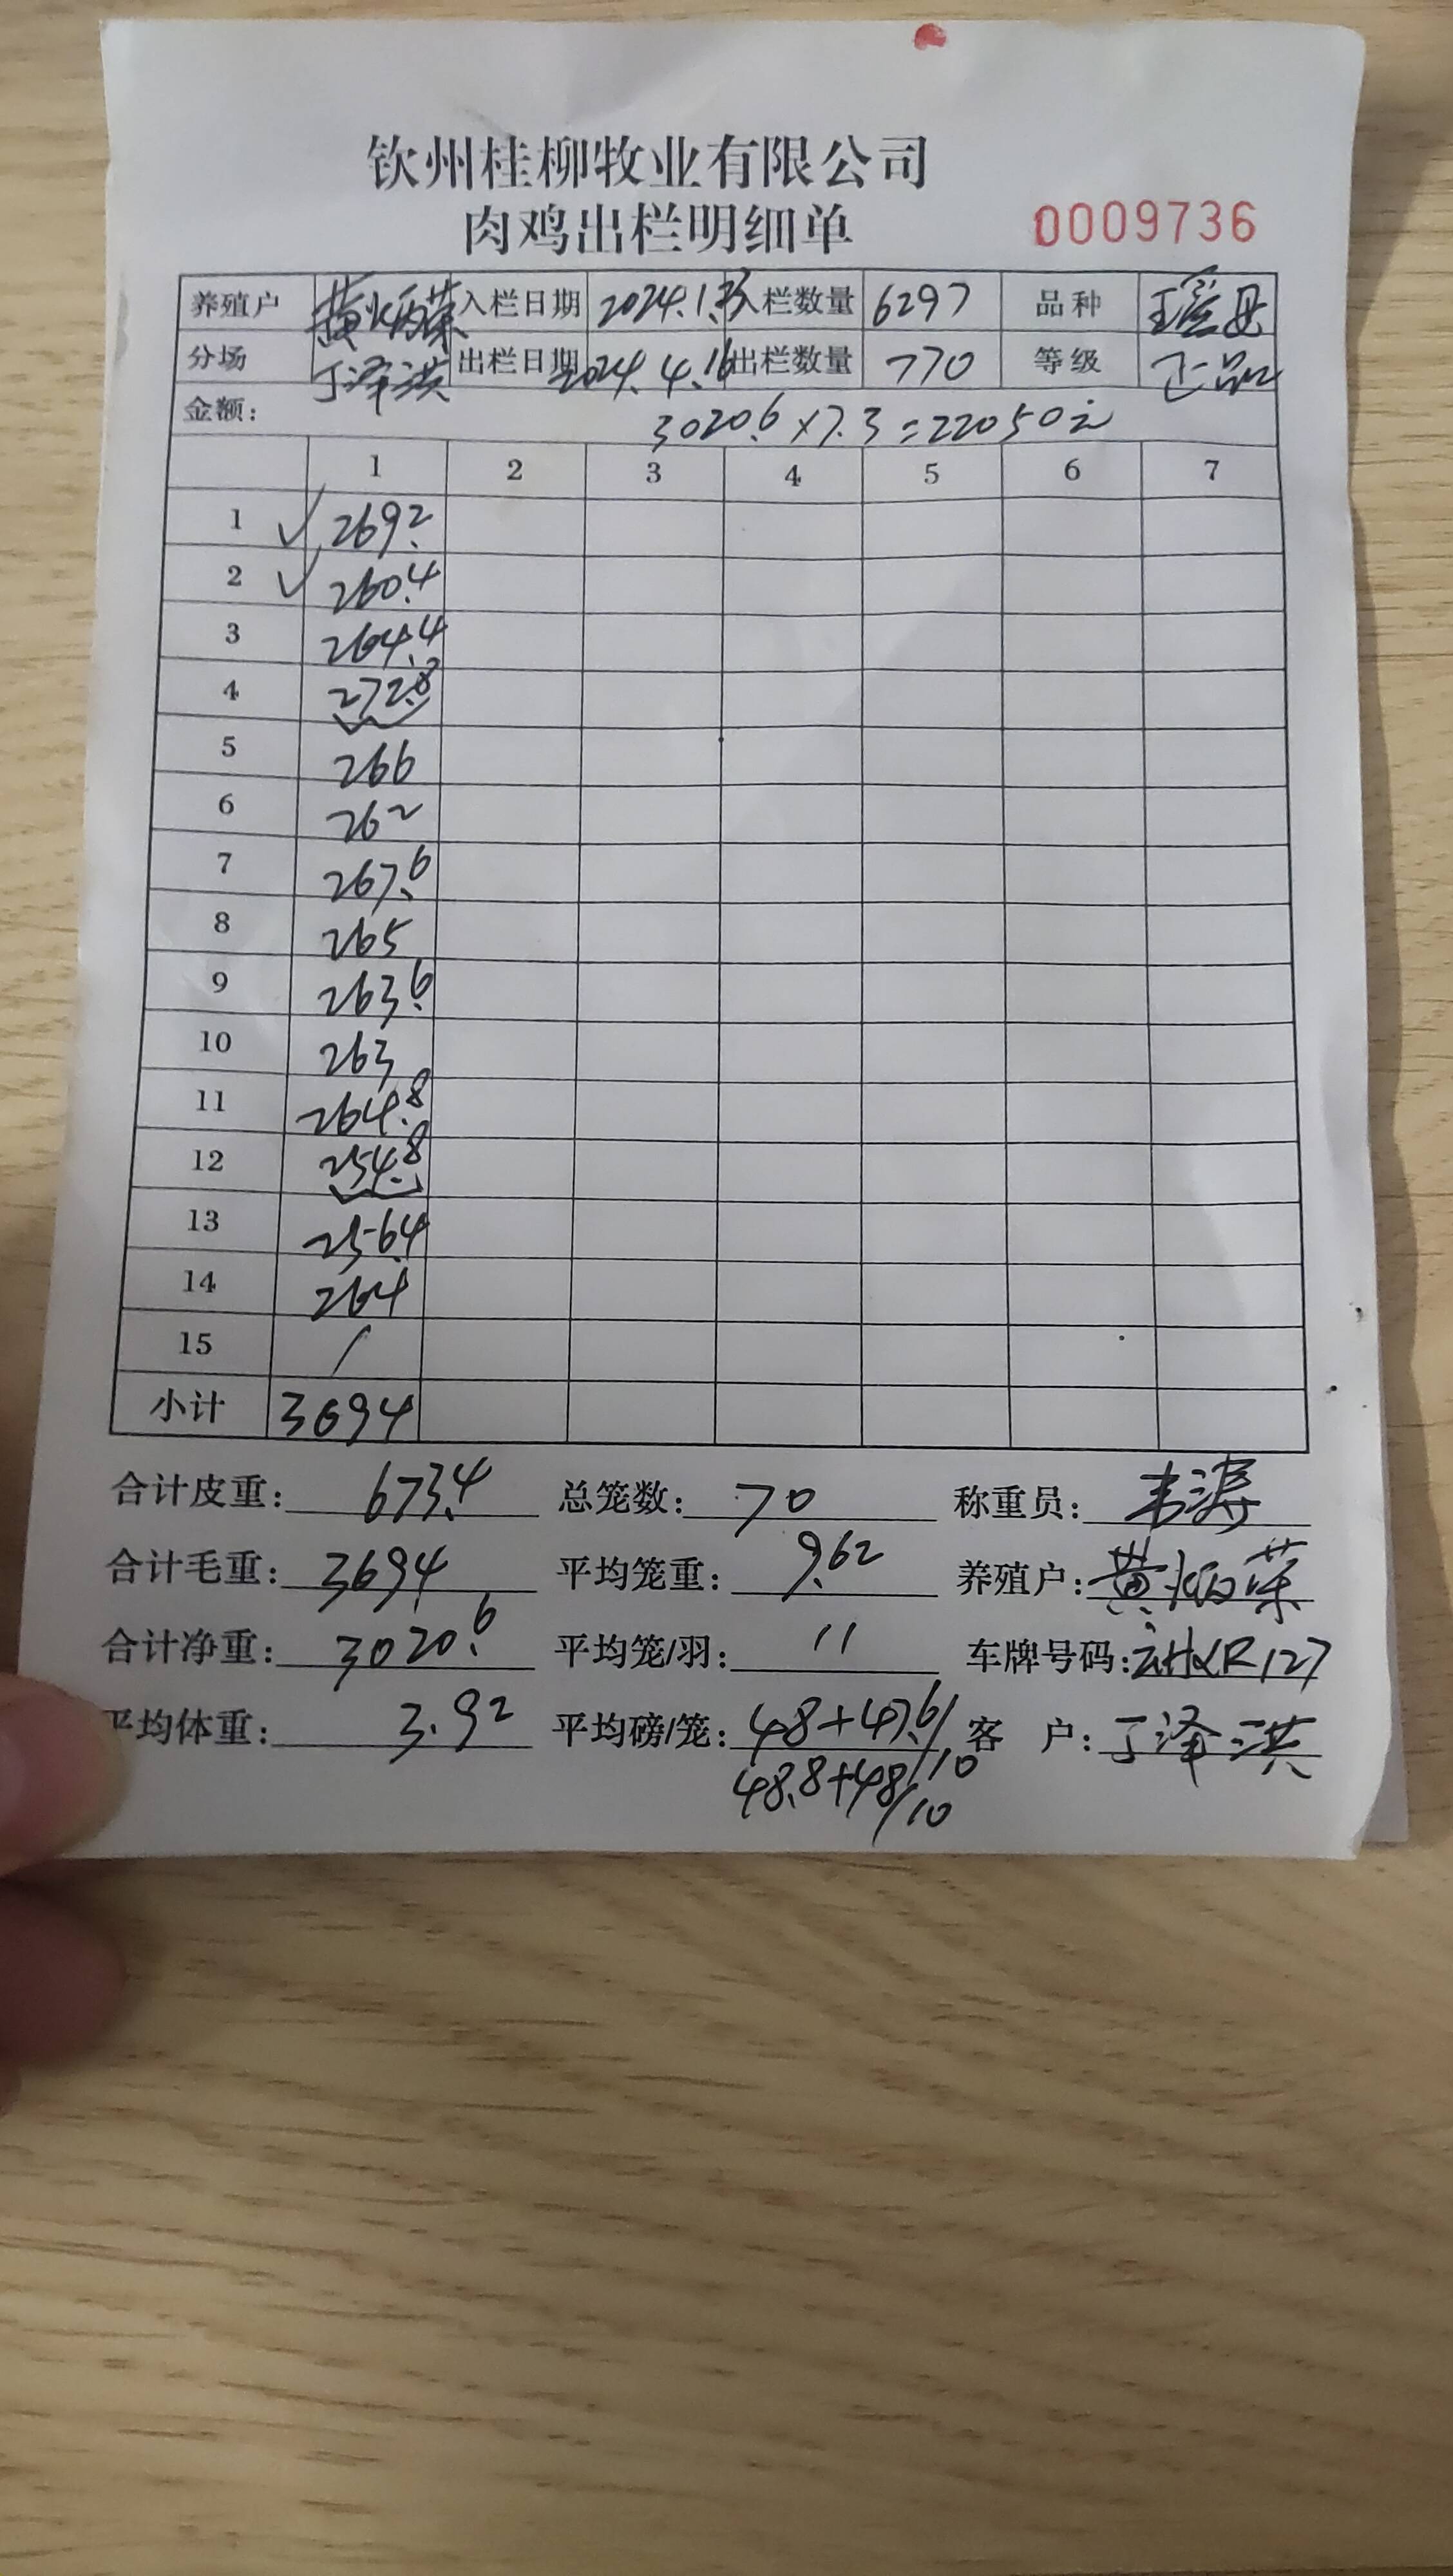 钦州桂柳牧业有限公司
肉鸡出栏明细单 0009736
养殖户 黄炳荣 入栏日期 2024.1.23 入栏数量 6297 品种
分场 丁泽洪 出栏日期 2024.4.16 出栏数量 770 等级 正品
金额: 3020.6×7.3=22050元
1 2 3 4 5 6 7
1 ✓ 269.2
2 ✓ 260.4
3 264.4
4 272.8
5 266
6 262
7 267.6
8 265
9 263.6
10 263
11 264.8
12 254.8
13 256.4
14 264
15 /
小计 3694
合计皮重: 673.4 总笼数: 70 称重员: 韦涛
合计毛重: 3694 平均笼重: 9.62 养殖户: 黄炳荣
合计净重: 3020.6 平均笼/羽: 11 车牌号码: R127
平均体重: 3.92 平均磅/笼: 48+47.6/10 客 户: 丁泽洪
48.8+48/10